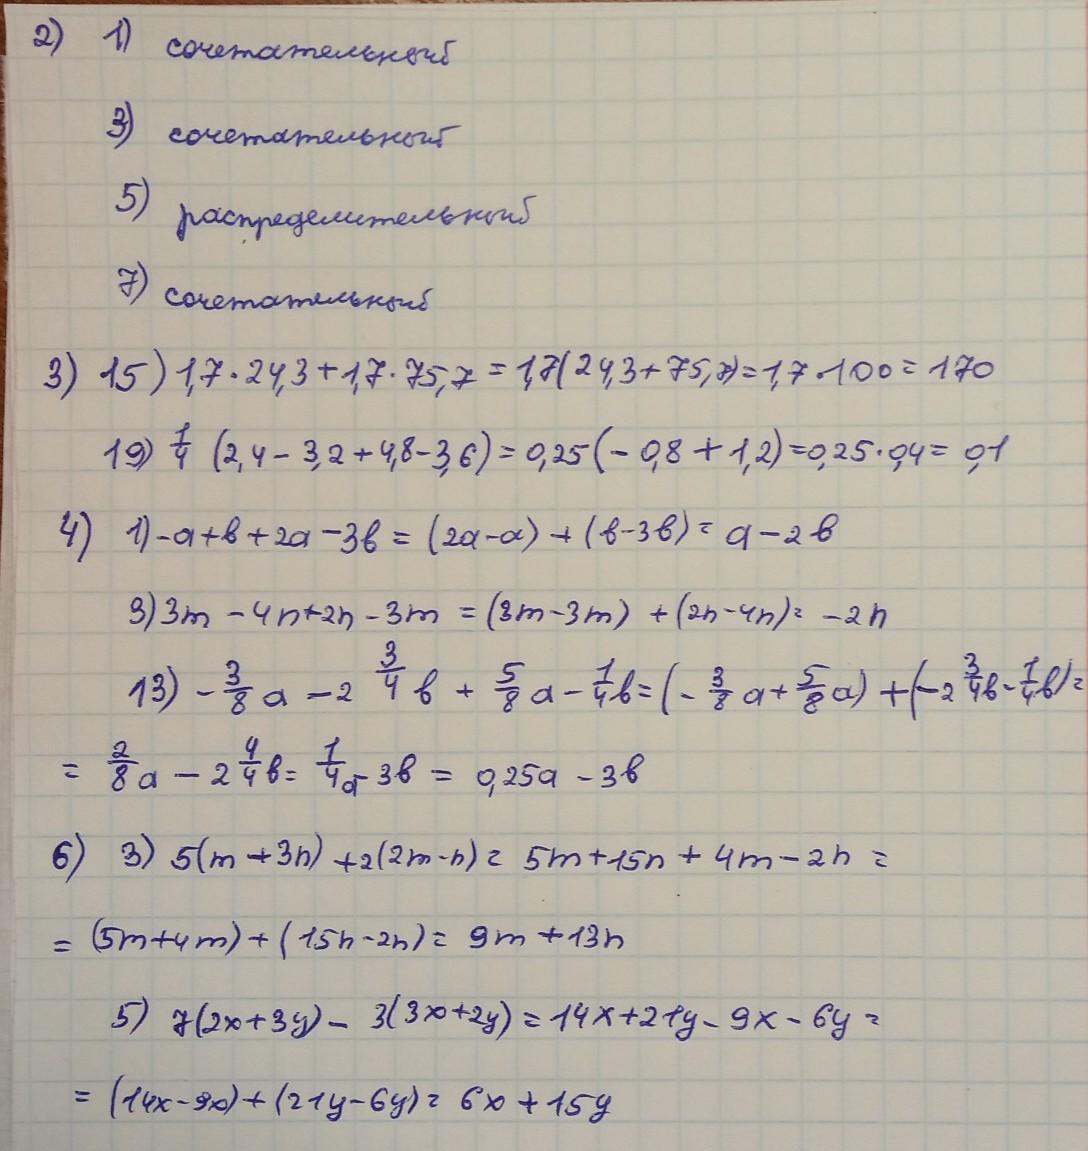 2) 1) сочетательный
3) сочетательный
5) распределительный
7) сочетательный
3) 15) 1,7·24,3+1,7·75,7=1,7(24,3+75,7)=1,7·100=170
19) 1/4 (2,4-3,2+4,8-3,6)=0,25(-0,8+1,2)=0,25·0,4=0,1
4) 1)-a+b+2a-3b=(2a-a)+(b-3b)=a-2b
9)3m-4n+2n-3m=(3m-3m)+(2n-4n)=-2n
13) -3/8a-2 3/4b+5/8a-1/4b=(-3/8a+5/8a)+(-2 3/4b-1/4b)=
=2/8a-2 4/4b=1/4a-3b=0,25a-3b
6) 3) 5(m+3n)+2(2m-n)=5m+15n+4m-2n=
=(5m+4m)+(15n-2n)=9m+13n
5) 7(2x+3y)-3(3x+2y)=14x+21y-9x-6y=
=(14x-9x)+(21y-6y)=6x+15y